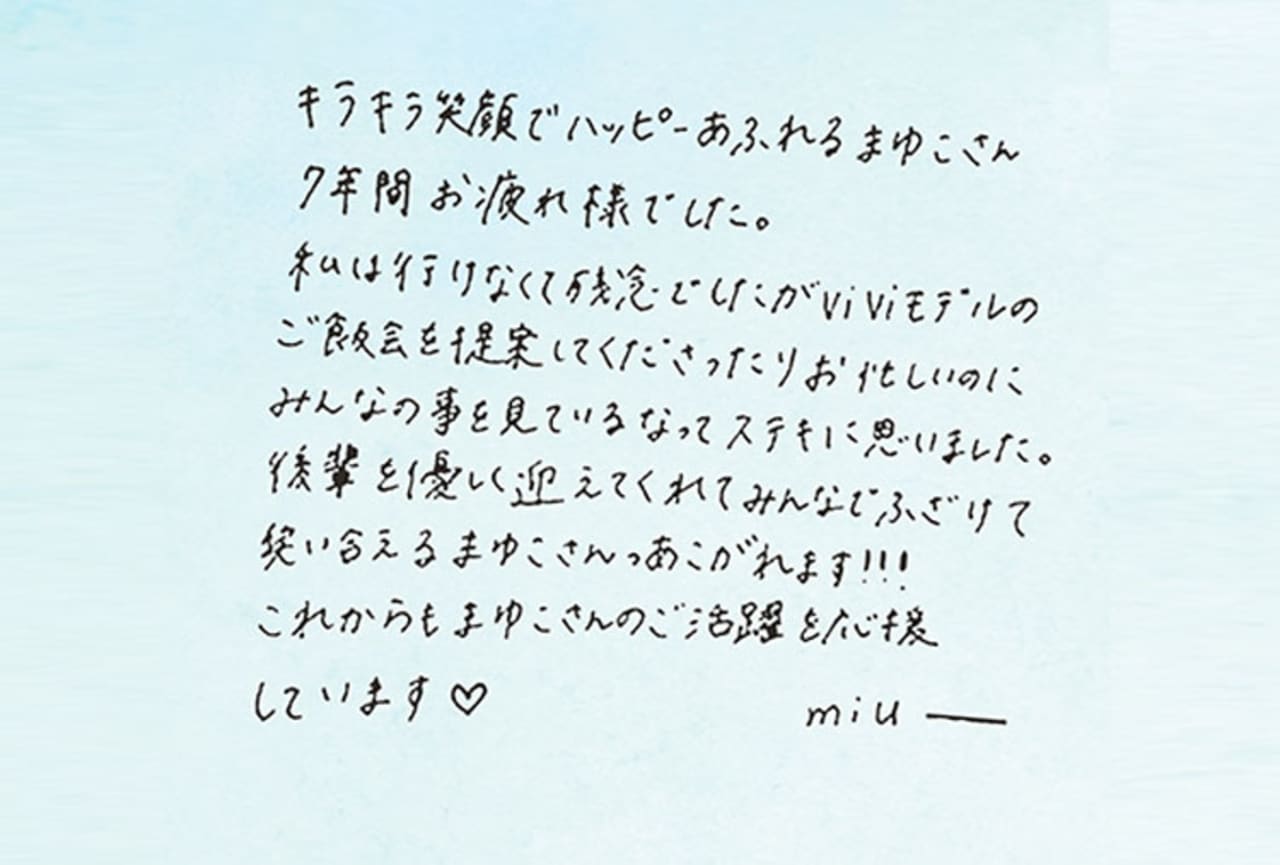 キラキラ笑顔でハッピーあふれるまゆこさん
7年間お疲れ様でした。
私は行けなくて残念でしたがViViモデルの
ご飯会を提案してくださったりお忙しいのに
みんなの事を見ているなってステキに思いました。
後輩を優しく迎えてくれてみんなでふざけて
笑い合えるまゆこさんっあこがれます!!!
これからもまゆこさんのご活躍を応援
しています♡
miu